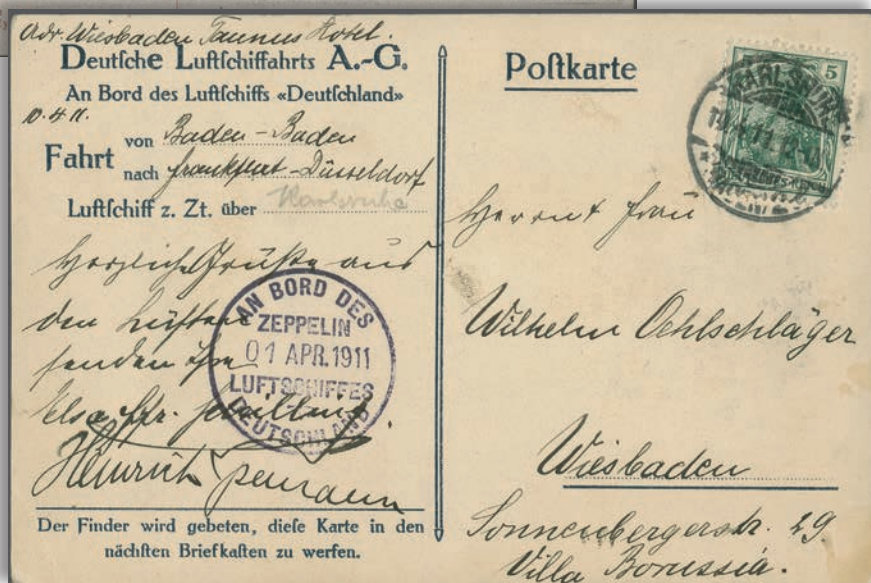 Adr. Wiesbaden Taunus Hotel.
Deutſche Luftſchiffahrts A.-G.
An Bord des Luftſchiffs «Deutſchland»
10.4.11.
Fahrt von Baden-Baden
nach Frankfurt-Düsseldorf
Luftſchiff z. Zt. über Karlsruhe
Herzliche Grüße aus
den Lüften
senden
Elsa
Heinrich
AN BORD DES
ZEPPELIN
01 APR. 1911
LUFTSCHIFFES
DEUTSCHLAND
Der Finder wird gebeten, dieſe Karte in den
nächſten Briefkaſten zu werfen.
Poſtkarte
5
KARLSRUHE
Herrn & Frau
Wilhelm Oehlschläger
Wiesbaden
Sonnenbergerstr. 29.
Villa Borussia.